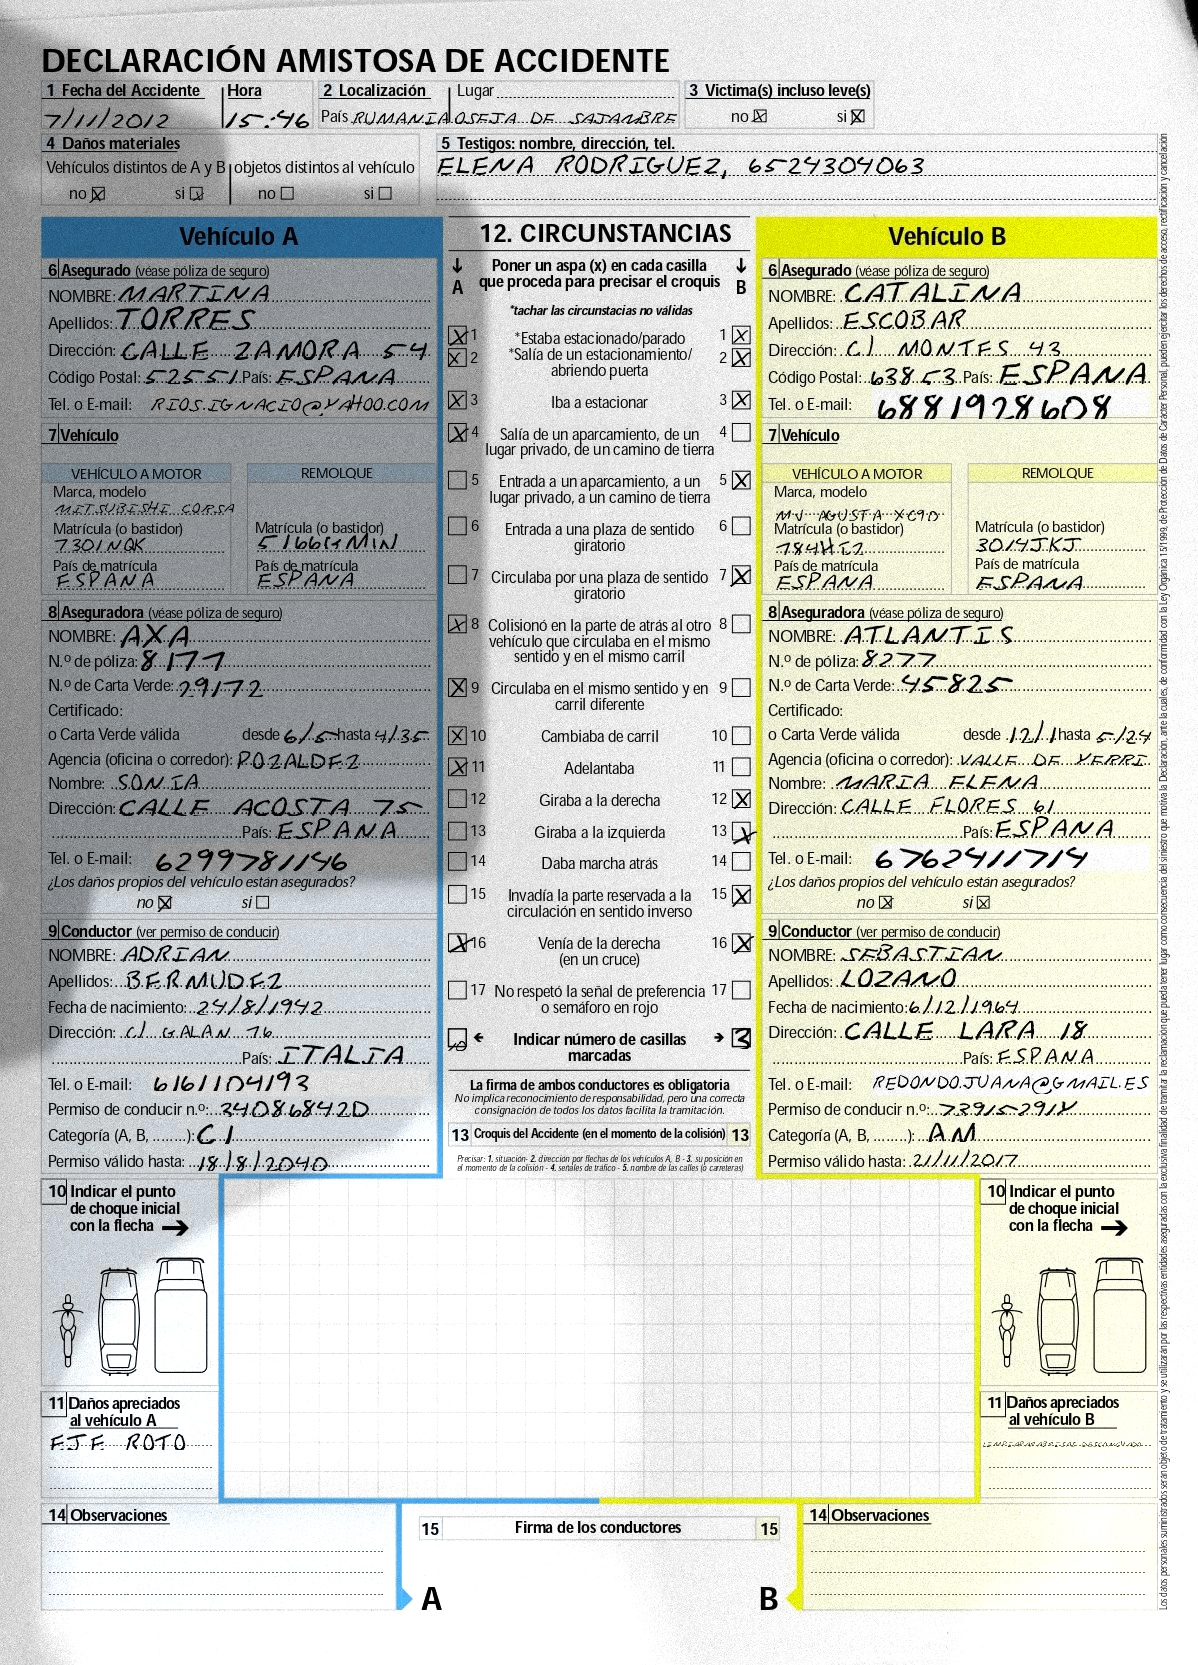 DECLARACIÓN AMISTOSA DE ACCIDENTE
1 Fecha del Accidente Hora 2 Localización Lugar 3 Victima(s) incluso leve(s)
7/11/2012 15:46 País RUMANIA OSEJA DE SAJAMBRE no si
4 Daños materiales 5 Testigos: nombre, dirección, tel.
Vehículos distintos de A y B objetos distintos al vehículo ELENA RODRIGUEZ, 6524304063
no si no si
Vehículo A
6 Asegurado (véase póliza de seguro)
NOMBRE: MARTINA
Apellidos: TORRES
Dirección: CALLE ZAMORA 54
Código Postal: 52551 País: ESPANA
Tel. o E-mail: RIOS.IGNACIO@YAHOO.COM
7 Vehículo
VEHÍCULO A MOTOR REMOLQUE
Marca, modelo
MITSUBISHI CORSA
Matrícula (o bastidor) Matrícula (o bastidor)
7301NQK 5166GMIN
País de matrícula País de matrícula
ESPANA ESPANA
8 Aseguradora (véase póliza de seguro)
NOMBRE: AXA
N.º de póliza: 8177
N.º de Carta Verde: 29172
Certificado:
o Carta Verde válida desde 6/5 hasta 4/35
Agencia (oficina o corredor): POZALDEZ
Nombre: SONIA
Dirección: CALLE ACOSTA 75
País: ESPANA
Tel. o E-mail: 6299781146
¿Los daños propios del vehículo están asegurados?
no si
9 Conductor (ver permiso de conducir)
NOMBRE: ADRIAN
Apellidos: BERMUDEZ
Fecha de nacimiento: 24/8/1942
Dirección: C/ GALAN 76
País: ITALIA
Tel. o E-mail: 6161104193
Permiso de conducir n.º: 34086842D
Categoría (A, B, ........): C1
Permiso válido hasta: 18/8/2040
10 Indicar el punto
de choque inicial
con la flecha
11 Daños apreciados
al vehículo A
EJE ROTO
14 Observaciones
12. CIRCUNSTANCIAS
Poner un aspa (x) en cada casilla
A que proceda para precisar el croquis B
*tachar las circunstacias no válidas
1 *Estaba estacionado/parado 1
2 *Salía de un estacionamiento/ 2
abriendo puerta
3 Iba a estacionar 3
4 Salía de un aparcamiento, de un 4
lugar privado, de un camino de tierra
5 Entrada a un aparcamiento, a un 5
lugar privado, a un camino de tierra
6 Entrada a una plaza de sentido 6
giratorio
7 Circulaba por una plaza de sentido 7
giratorio
8 Colisionó en la parte de atrás al otro 8
vehículo que circulaba en el mismo
sentido y en el mismo carril
9 Circulaba en el mismo sentido y en 9
carril diferente
10 Cambiaba de carril 10
11 Adelantaba 11
12 Giraba a la derecha 12
13 Giraba a la izquierda 13
14 Daba marcha atrás 14
15 Invadía la parte reservada a la 15
circulación en sentido inverso
16 Venía de la derecha 16
(en un cruce)
17 No respetó la señal de preferencia 17
o semáforo en rojo
10 Indicar número de casillas 3
marcadas
La firma de ambos conductores es obligatoria
No implica reconocimiento de responsabilidad, pero una correcta
consignación de todos los datos facilita la tramitación.
13 Croquis del Accidente (en el momento de la colisión) 13
Precisar: 1. situación- 2. dirección por flechas de los vehículos A, B - 3. su posición en
el momento de la colisión - 4. señales de tráfico - 5. nombre de las calles (o carreteras)
15 Firma de los conductores 15
A B
Vehículo B
6 Asegurado (véase póliza de seguro)
NOMBRE: CATALINA
Apellidos: ESCOBAR
Dirección: C/ MONTES 43
Código Postal: 63853 País: ESPANA
Tel. o E-mail: 6881928608
7 Vehículo
VEHÍCULO A MOTOR REMOLQUE
Marca, modelo
MV AGUSTA XC90
Matrícula (o bastidor) Matrícula (o bastidor)
784HIZ 3014JKJ
País de matrícula País de matrícula
ESPANA ESPANA
8 Aseguradora (véase póliza de seguro)
NOMBRE: ATLANTIS
N.º de póliza: 8277
N.º de Carta Verde: 45825
Certificado:
o Carta Verde válida desde 12/1 hasta 5/24
Agencia (oficina o corredor): VALLE DE YERRI
Nombre: MARIA ELENA
Dirección: CALLE FLORES 61
País: ESPANA
Tel. o E-mail: 6762411714
¿Los daños propios del vehículo están asegurados?
no si
9 Conductor (ver permiso de conducir)
NOMBRE: SEBASTIAN
Apellidos: LOZANO
Fecha de nacimiento: 6/12/1964
Dirección: CALLE LARA 18
País: ESPANA
Tel. o E-mail: REDONDOJUANA@GMAIL.ES
Permiso de conducir n.º: 73915291X
Categoría (A, B, ........): AM
Permiso válido hasta: 21/11/2017
10 Indicar el punto
de choque inicial
con la flecha
11 Daños apreciados
al vehículo B
LIMPIAPARABRISAS DESCOLGADO
14 Observaciones
Los datos personales suministrados seran objeto de tratamiento y se utilizaran por las respectivas entidades aseguradas con la exclusiva finalidad de tramitar la reclamación que pueda tener lugar como consecuencia del siniestro que motiva la Declaración, ante la cuales, de conformidad con la Ley Organica 15/1999, de Protección de Datos de Caracter Personal, pueden ejercitar los derechos de acceso, rectificación y cancelación